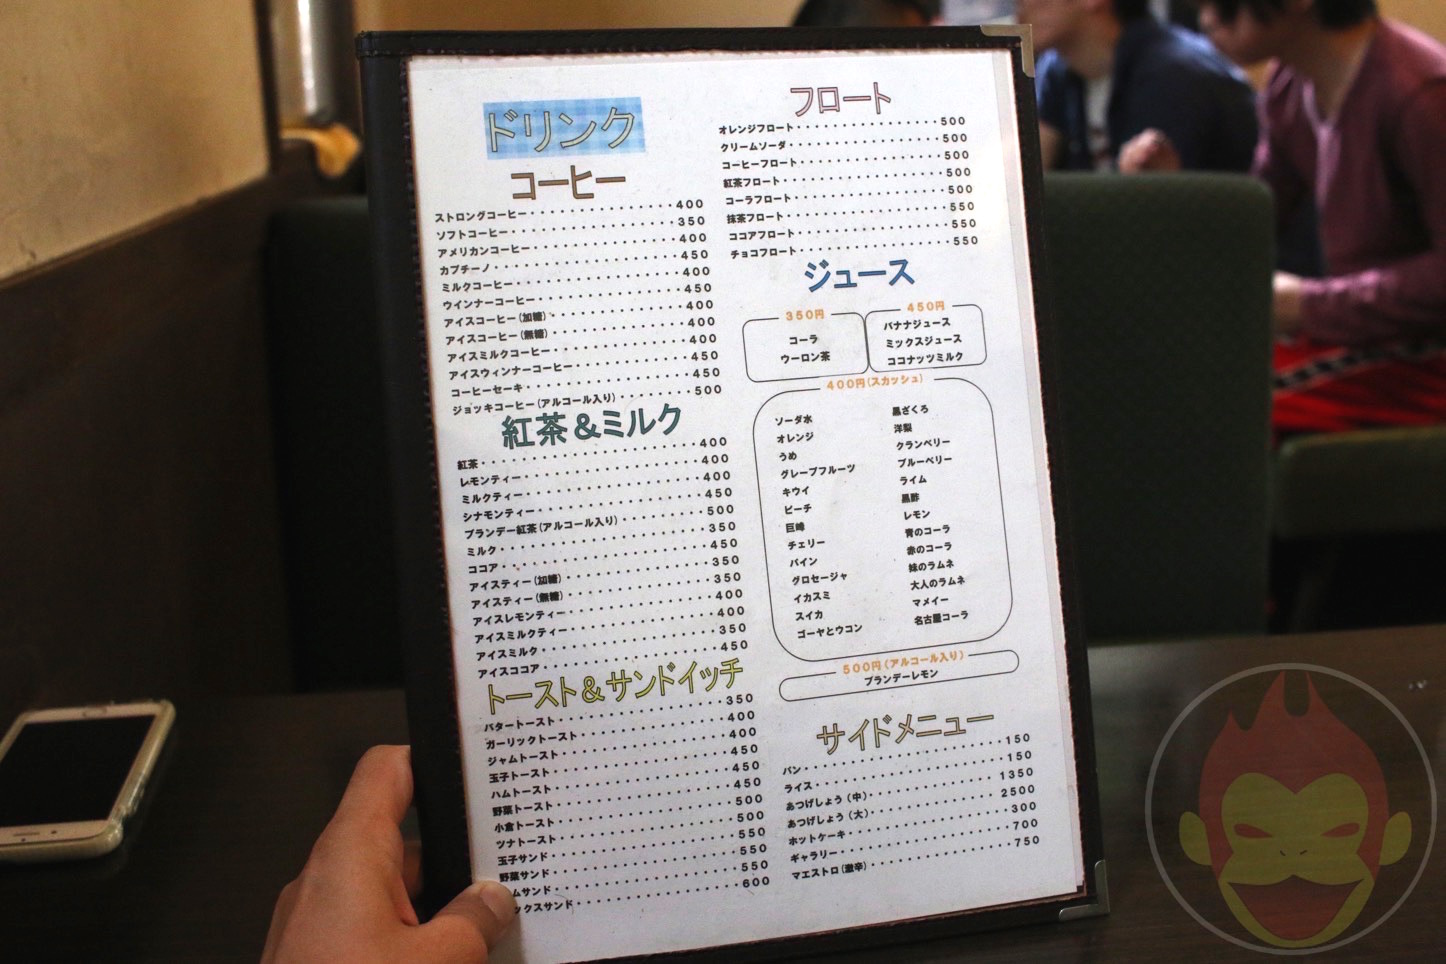 ドリンク
コーヒー
ストロングコーヒー・・・・・・・・・・・・・・・・400
ソフトコーヒー・・・・・・・・・・・・・・・・350
アメリカンコーヒー・・・・・・・・・・・・・・・・400
カプチーノ・・・・・・・・・・・・・・・・450
ミルクコーヒー・・・・・・・・・・・・・・・・400
ウインナーコーヒー・・・・・・・・・・・・・・・・450
アイスコーヒー(加糖)・・・・・・・・・・・・・・・・400
アイスコーヒー(無糖)・・・・・・・・・・・・・・・・400
アイスミルクコーヒー・・・・・・・・・・・・・・・・400
アイスウィンナーコーヒー・・・・・・・・・・・・450
コーヒーセーキ・・・・・・・・・・・・・・・・450
ジョッキコーヒー(アルコール入り)・・・・・・・・500
紅茶&ミルク
紅茶・・・・・・・・・・・・・・・・400
レモンティー・・・・・・・・・・・・・・・・400
ミルクティー・・・・・・・・・・・・・・・・400
シナモンティー・・・・・・・・・・・・・・・・450
ブランデー紅茶(アルコール入り)・・・・・・・・500
ミルク・・・・・・・・・・・・・・・・350
ココア・・・・・・・・・・・・・・・・450
アイスティー(加糖)・・・・・・・・・・・・・・350
アイスティー(無糖)・・・・・・・・・・・・・・350
アイスレモンティー・・・・・・・・・・・・・・400
アイスミルクティー・・・・・・・・・・・・・・400
アイスミルク・・・・・・・・・・・・・・・・350
アイスココア・・・・・・・・・・・・・・・・450
トースト&サンドイッチ
バタートースト・・・・・・・・・・・・・・350
ガーリックトースト・・・・・・・・・・・・・・400
ジャムトースト・・・・・・・・・・・・・・400
玉子トースト・・・・・・・・・・・・・・450
ハムトースト・・・・・・・・・・・・・・450
野菜トースト・・・・・・・・・・・・・・450
小倉トースト・・・・・・・・・・・・・・500
ツナトースト・・・・・・・・・・・・・・500
玉子サンド・・・・・・・・・・・・・・550
野菜サンド・・・・・・・・・・・・・・550
ムサンド・・・・・・・・・・・・・・550
ックスサンド・・・・・・・・・・・・・・600
フロート
オレンジフロート・・・・・・・・・・・・・・500
クリームソーダ・・・・・・・・・・・・・・500
コーヒーフロート・・・・・・・・・・・・・・500
紅茶フロート・・・・・・・・・・・・・・500
コーラフロート・・・・・・・・・・・・・・500
抹茶フロート・・・・・・・・・・・・・・550
ココアフロート・・・・・・・・・・・・・・550
チョコフロート・・・・・・・・・・・・・・550
ジュース
350円
コーラ
ウーロン茶
450円
バナナジュース
ミックスジュース
ココナッツミルク
400円(スカッシュ)
ソーダ水
オレンジ
うめ
グレープフルーツ
キウイ
ピーチ
巨峰
チェリー
パイン
グロセージャ
イカスミ
スイカ
ゴーヤとウコン
黒ざくろ
洋梨
クランベリー
ブルーベリー
ライム
黒酢
レモン
青のコーラ
赤のコーラ
妹のラムネ
大人のラムネ
マメイー
名古屋コーラ
500円(アルコール入り)
ブランデーレモン
サイドメニュー
パン・・・・・・・・・・・・・・150
ライス・・・・・・・・・・・・・・150
あつげしょう(中)・・・・・・・・・・1350
あつげしょう(大)・・・・・・・・・・2500
ホットケーキ・・・・・・・・・・・・300
ギャラリー・・・・・・・・・・・・700
マエストロ(激辛)・・・・・・・・・・750